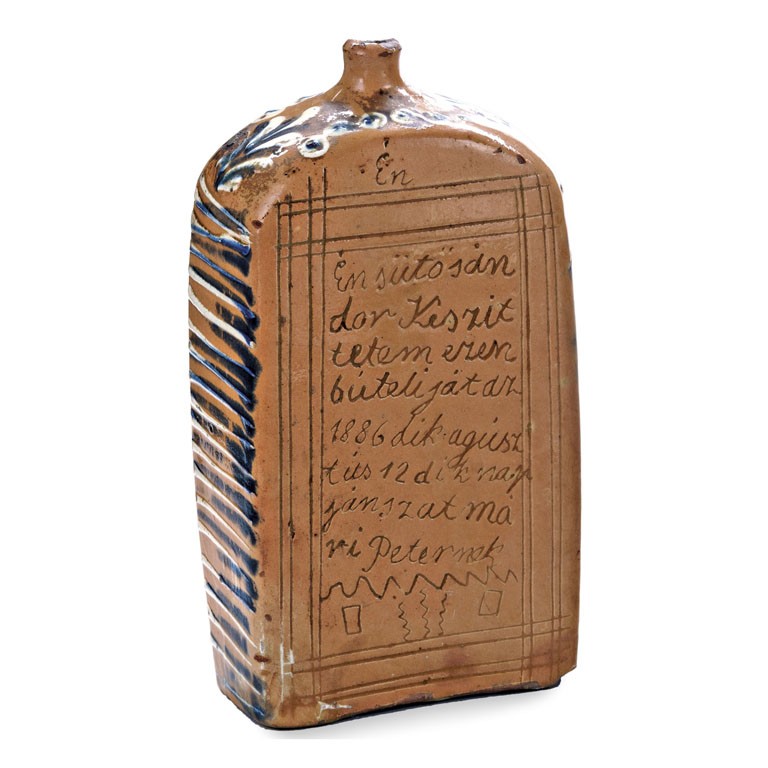 Én
Én sütő sán
dor Keszit
tetem ezen
búteliját az
1886 dik agúsz
tús 12 dik nap
ján szat ma
ri Peternek